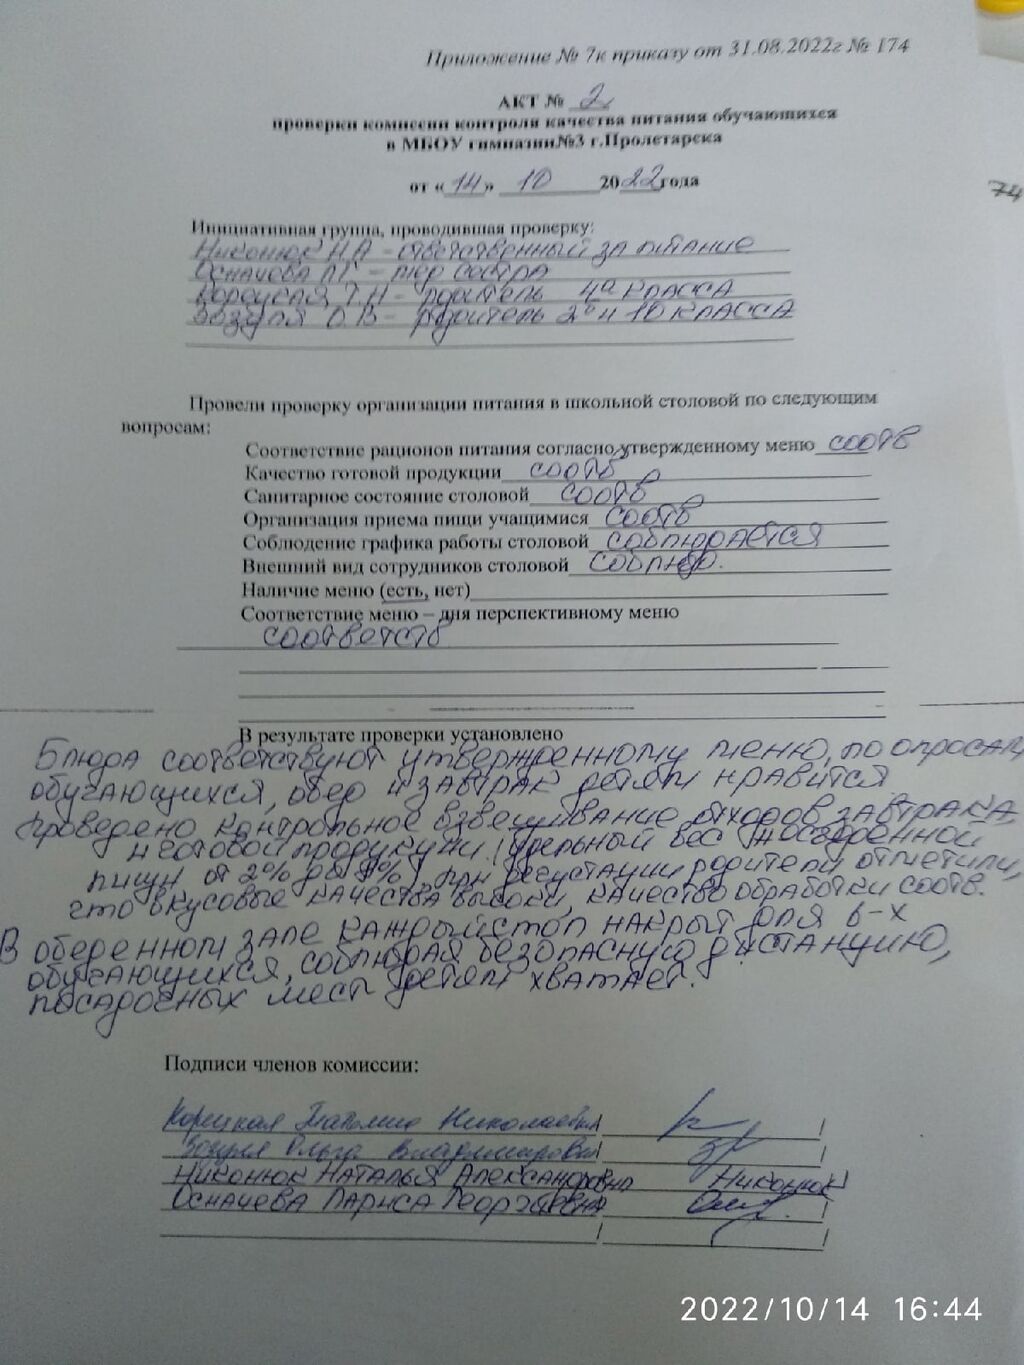 Приложение № 7к приказу от 31.08.2022г № 174
АКТ № 2
проверки комиссии контроля качества питания обучающихся
в МБОУ гимназии№3 г.Пролетарска
от «14» 10 2022года
74
Инициативная группа, проводившая проверку:
Никонюк Н.А - ответственный за питание
Осначева Л.Г. - мед сестра
Корецкая Т.Н - родитель 4а класса
О.В - родитель 2б и 10 класса
Провели проверку организации питания в школьной столовой по следующим
вопросам:
Соответствие рационов питания согласно утвержденному меню соотв
Качество готовой продукции соотв
Санитарное состояние столовой соотв
Организация приема пищи учащимися соотв
Соблюдение графика работы столовой соблюдается
Внешний вид сотрудников столовой соблюд.
Наличие меню (есть, нет)
Соответствие меню – дня перспективному меню
соответств
В результате проверки установлено
Блюда соответствуют утвержденному меню, по опросам
обучающихся, обед и завтрак детям нравится.
Проведено контрольное взвешивание отходов завтрака
и готовой продукции (удельный вес несъеденной
пищи от 2% до %), при дегустации родители отметили,
что вкусовые качества высоки, качество обработки соотв.
В обеденном зале каждый стол накрыт для 6-х
обучающихся, соблюдая безопасную дистанцию,
посадочных мест детям хватает.
Подписи членов комиссии:
Корецкая Николаевна
Ольга Владимировна
Никонюк Наталья Александровна Никонюк
Осначева Лариса Георгиевна
2022/10/14 16:44